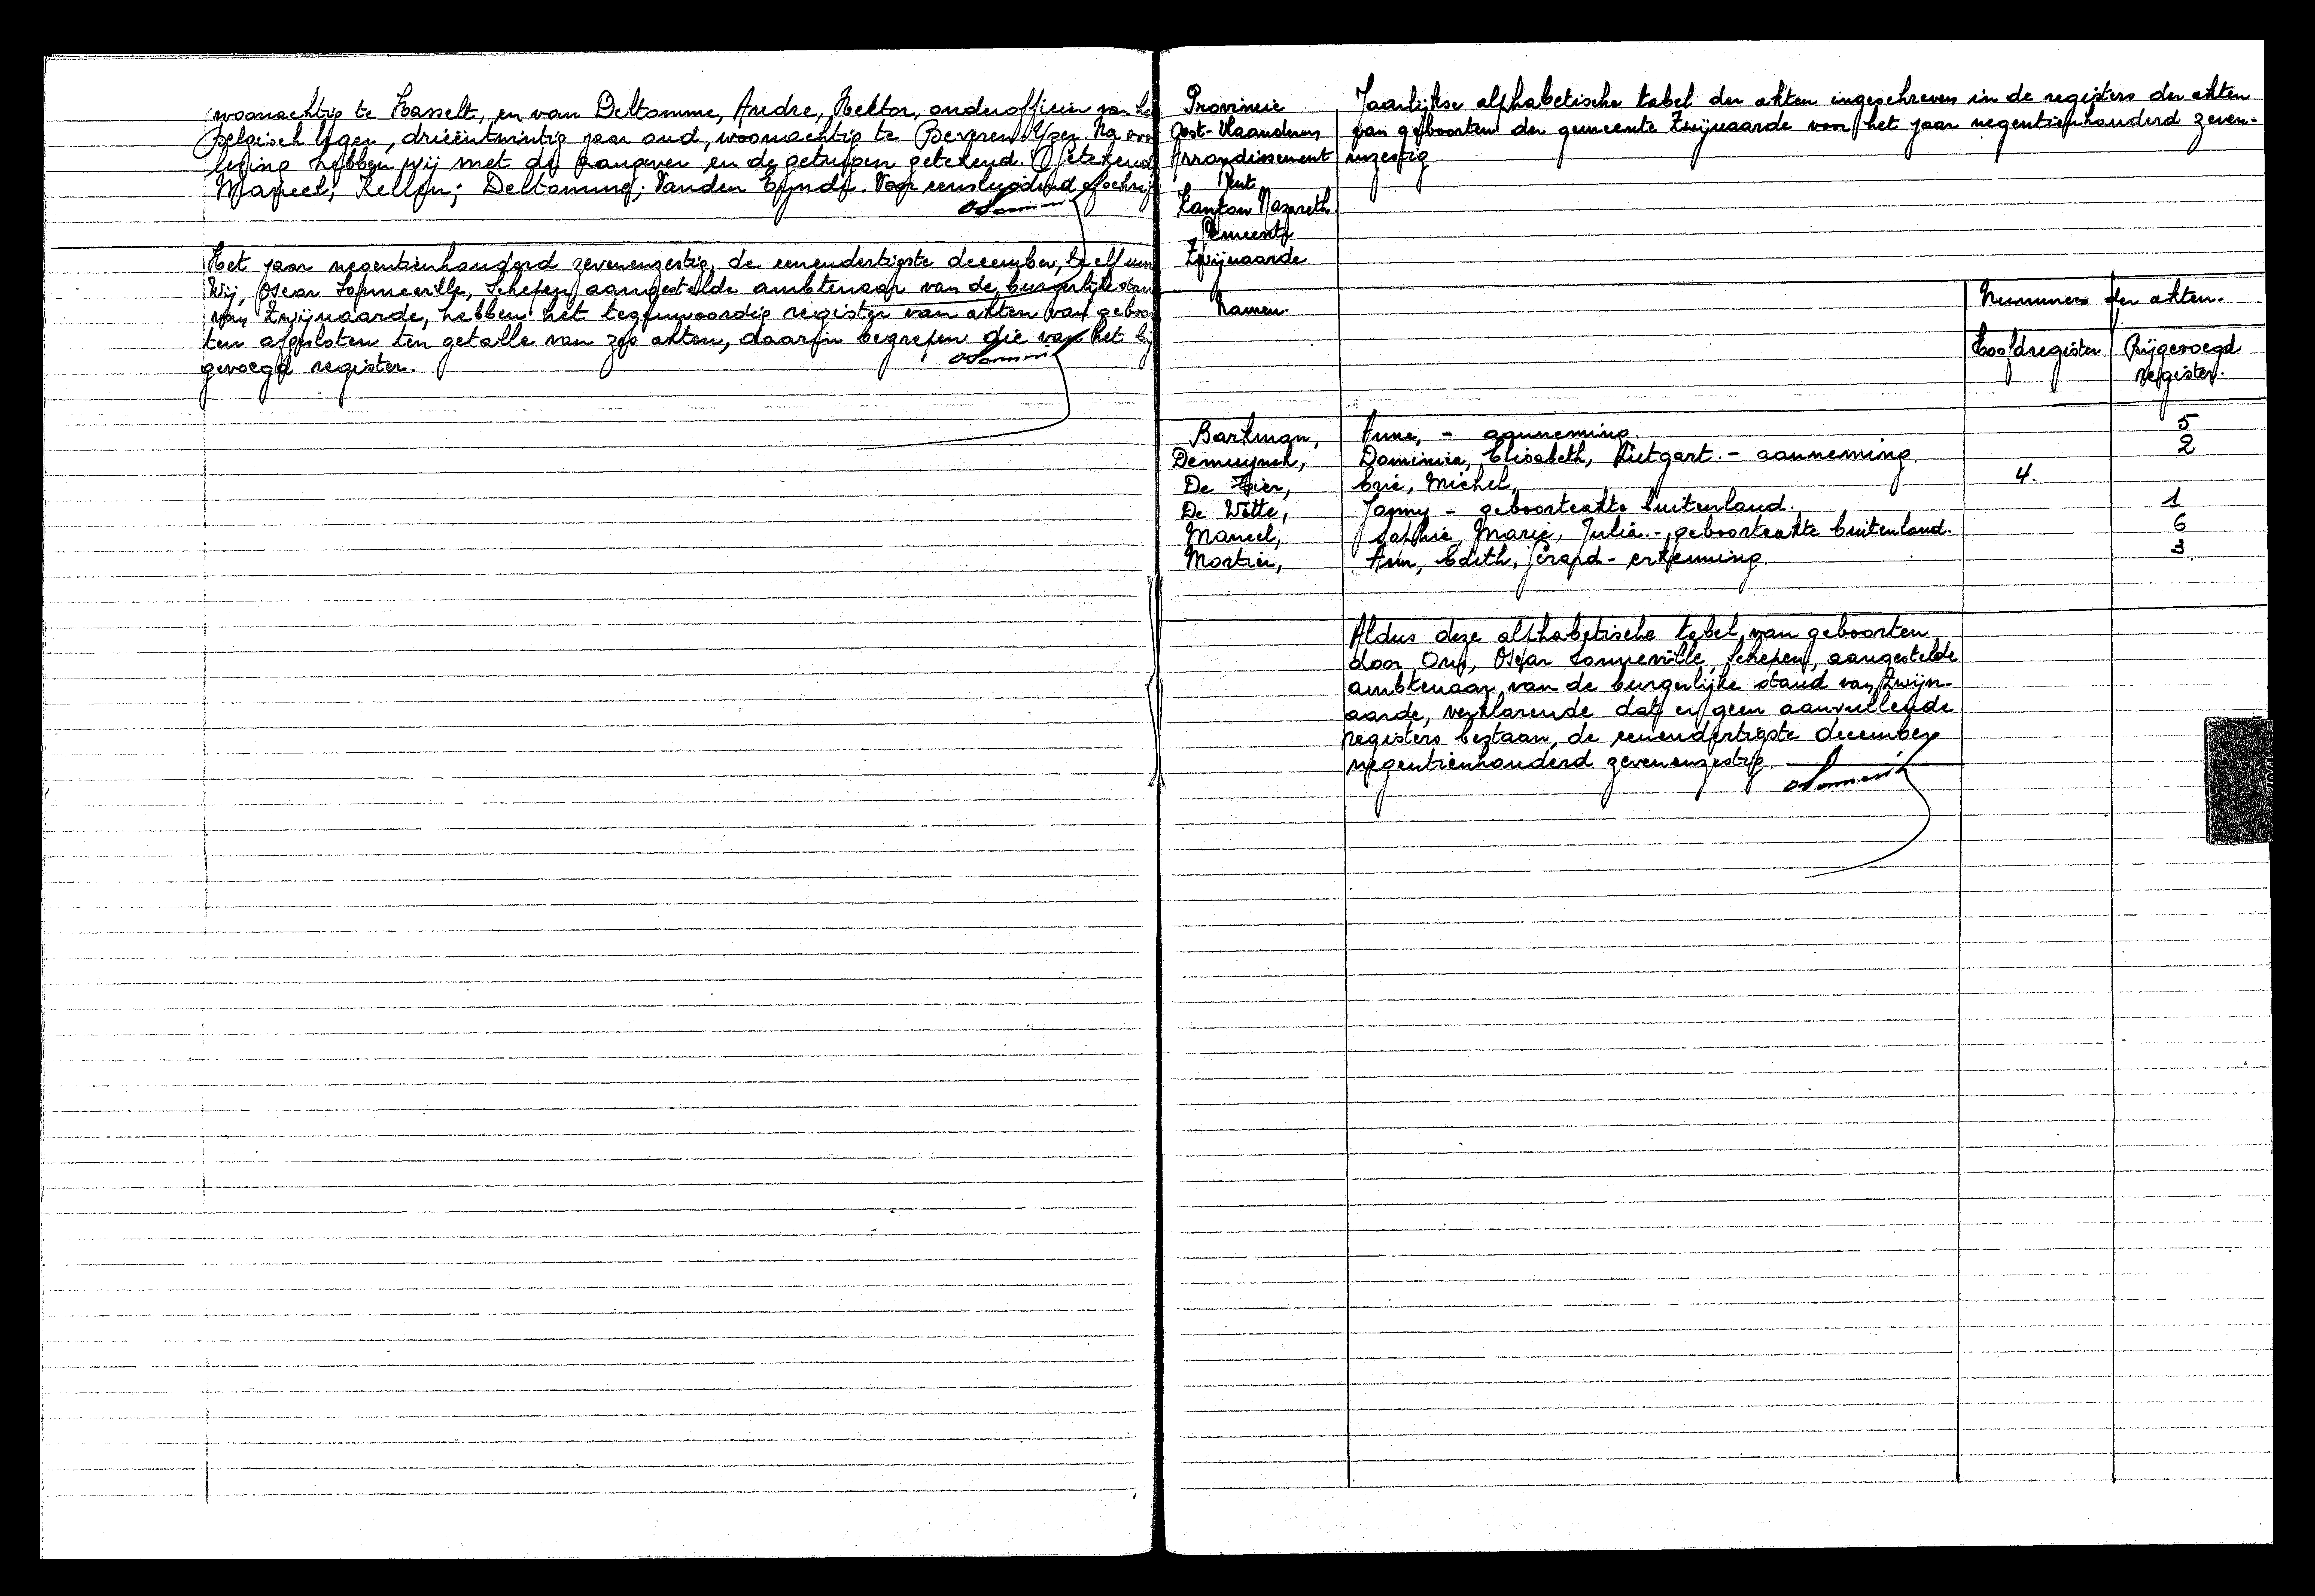 woonachtig te Hasselt, en van Deltomme, Andre, Hektor, onderofficier van he
Belgisch leger, drieëntwintig jaar oud, woonachtig te Beveren-Yzer. Na voor
lezing hebben wij met de aangever en de getuigen getekend. (Getekend
Marcel; Kellen; Deltomme; Vanden Eynde. Voor eensluidend afschrif
Het jaar negentienhonderd zevenenzestig, de eenendertigste december, te elf uur
Wij, Oscar Sonneville, Schepen, aangestelde ambtenaar van de burgerlijke stan
van Zwijnaarde, hebben het tegenwoordig register van akten van geboor
ten afgesloten ten getalle van zes akten, daarin begrepen die van het bij
gevoegd register.
Provincie
Oost-Vlaanderen
Arrondissement
Gent
Kanton Nazareth
Gemeente
Zwijnaarde
Jaarlijkse alphabetische tabel der akten ingeschreven in de registers der akten
van geboorten der gemeente Zwijnaarde voor het jaar negentienhonderd zeven-
enzestig
Namen.
Nummers der akten.
Hoofdregister Bijgevoegd
register.
Barkman, Anne, - aanneming. 5
Demuynck, Dominica, Elisabeth, Lutgart. - aanneming. 2
De Eric, Michel, 4.
De Witte, Janny - geboorteakte buitenland. 1
Marcel, Sophie, Marie, Julia. - geboorteakte buitenland. 6
Mortier, Ann, Edith, Gerard - erkenning. 3.
Aldus deze alphabetische tabel van geboorten
door Ons, Oscar Sonneville, Schepen, aangestelde
ambtenaar van de burgerlijke stand van Zwijn-
aarde, verklarende dat er geen aanvullende
registers bestaan, de eenendertigste december
negentienhonderd zevenenzestig.